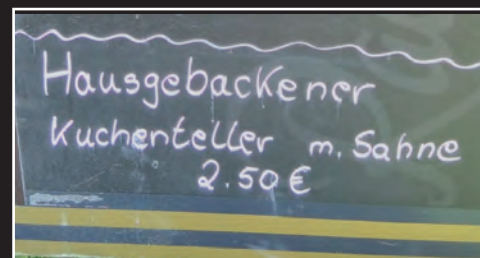 Hausgebackener
Kuchenteller m. Sahne
2.50€